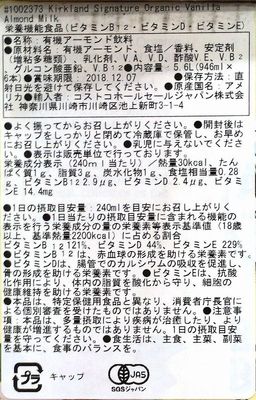 #1002373 Kirkland Signature Organic Vanilla
Almond Milk
栄養機能食品(ビタミンB12・ビタミンD・ビタミンE)
●名称:有機アーモンド飲料
●原材料名:有機アーモンド、食塩/香料、安定剤
(増粘多糖類)、乳化剤、V.A、V.D、酢酸V.E、V.B2
グルコン酸亜鉛、V.B12●内容量:5.6L(946ml×
6本)●賞味期限:2018.12.07 ●保存方法:直
射日光を避けて保存してください。●原産国:アメ
リカ●輸入者:コストコホールセールジャパン株式会
社 神奈川県川崎市川崎区池上新町3-1-4
●よく振ってからお召し上がりください。●開封後は
キャップをしっかりと閉めて冷蔵庫で保管し、お早め
にお召し上がりください。●乳児に与えないでくださ
い。●表示は販売単位で行っております。
栄養成分表示(240ml当り)/熱量30kcal、たん
ぱく質1g、脂質3g、炭水化物1g、食塩相当量0.28
g、ビタミンB12 2.9μg、ビタミンD 2.4μg、ビタミン
E 14.4mg
●1日の摂取目安量:240mlを目安にお召し上がりく
ださい。●1日当たりの摂取目安量に含まれる機能の
表示を行う栄養成分の量の栄養素等表示基準値(18歳以
上、基準熱量2200kcal)に占める割合
ビタミンB12 121% ビタミンD 44% ビタミンE 229%
●ビタミンB12は、赤血球の形成を助ける栄養素です。
●ビタミンDは、腸管でのカルシウムの吸収を促進し、
骨の形成を助ける栄養素です。●ビタミンEは、抗酸
化作用により、体内の脂質を酸化から守り、細胞の
健康維持を助ける栄養素です。
●本品は、特定保健用食品と異なり、消費者庁長官に
よる個別審査を受けたものではありません。●注意事
項:本品は、多量摂取により疾病が治癒したり、より
健康が増進するものではありません。1日の摂取目安
量を守ってください。●食生活は、主食、主菜、副菜
を基本に、食事のバランスを。
プラ キャップ JAS
SGSジャパン